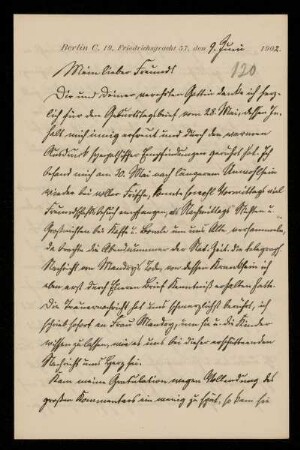 Berlin C. 19, Friedrichsgracht 57, den 9. Juni 1902.
120
Mein lieber Freund!
Dir und Deiner verehrten Gattin danke ich herz-
lich für den Geburtstagsbrief vom 28. Mai, dessen In-
halt mich innig erfreut und durch den warmen
Ausdruck herzlicher Empfindungen gerührt hat. Ich
befand mich am 30. Mai nach längerem Unwohlsein
wieder bei voller Frische, konnte sowohl Vormittags viel
Freundschaftsbesuch empfangen, als Nachmittags
bei Kaffe u. um uns Alte versammeln,
da brachte die Abendnummer der Nat. Zeit. die telegraph.
Nachricht von Tode, von dessen Krankheit ich
aber erst durch Ihren Brief Kenntniß erhalten hatte.
Die Trauernachricht hat uns schmerzlichst berührt, ich
schrieb sofort an Frau um sie u. die Kinder
wissen zu lassen, wie es uns bei dieser erschütternden
Nachricht ums Herz sei.
Kam meine Gratulation wegen Vollendung des
großen Kommentars ein wenig zu spät, so kam sie